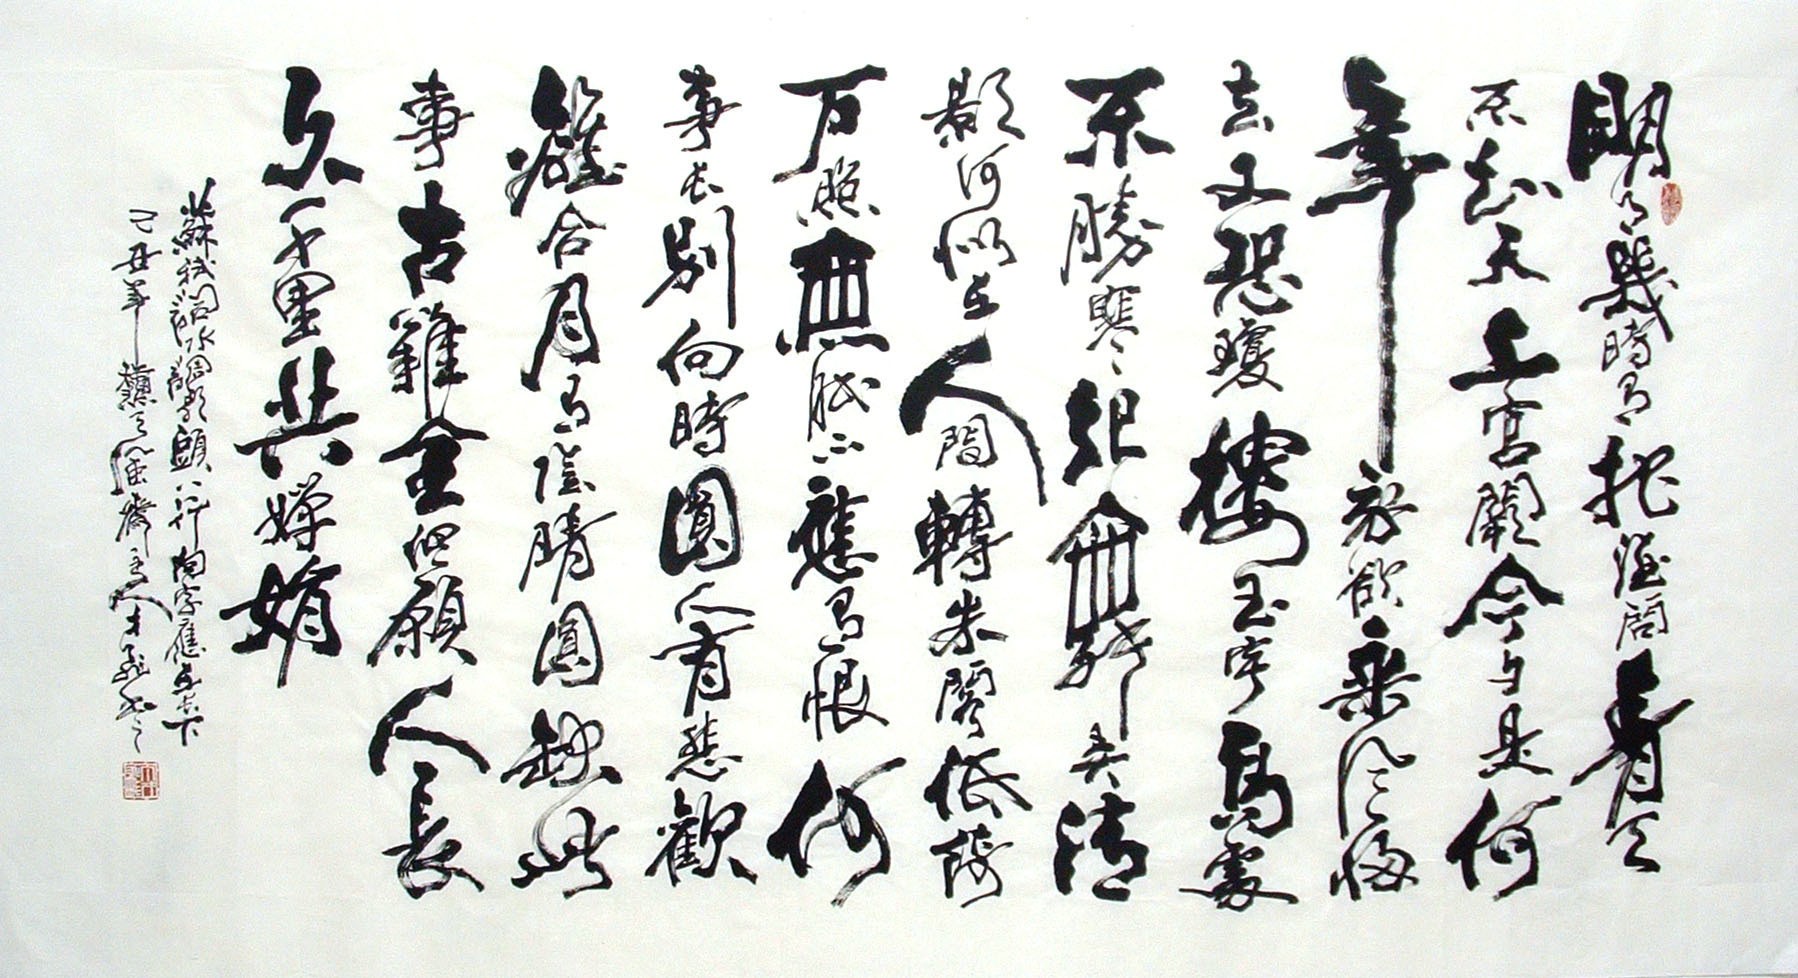 明月幾時有把酒問青天
不知天上宮闕今夕是何
年我欲乘風歸
去又恐瓊樓玉宇高處
不勝寒起舞弄清
影何似在人間轉朱閣低綺
户照無眠不應有恨何
事長別向時圓人有悲歡
離合月有陰晴圓缺此
事古難全但願人長
久千里共嬋娟
蘇軾詞水調歌頭
己丑年